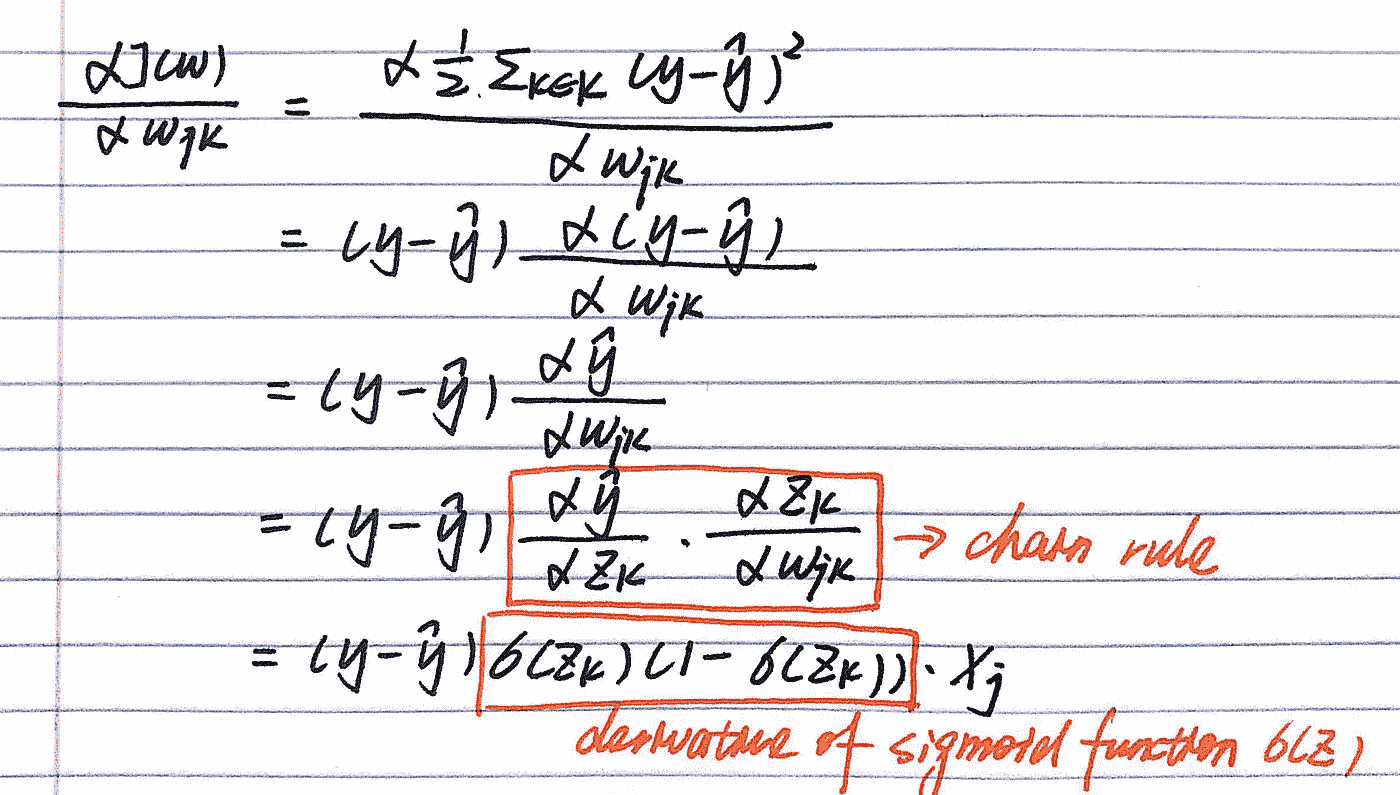 αJ(w) / αw_jk = α 1/2 . Σ_k∈K (y - ŷ)² / αw_jk
= (y - ŷ) α(y - ŷ) / αw_jk
= (y - ŷ) αŷ / αw_jk
= (y - ŷ) αŷ / αz_k · αz_k / αw_jk → chain rule
= (y - ŷ) σ(z_k)(1 - σ(z_k)) · X_j
derivative of sigmoid function σ(z)